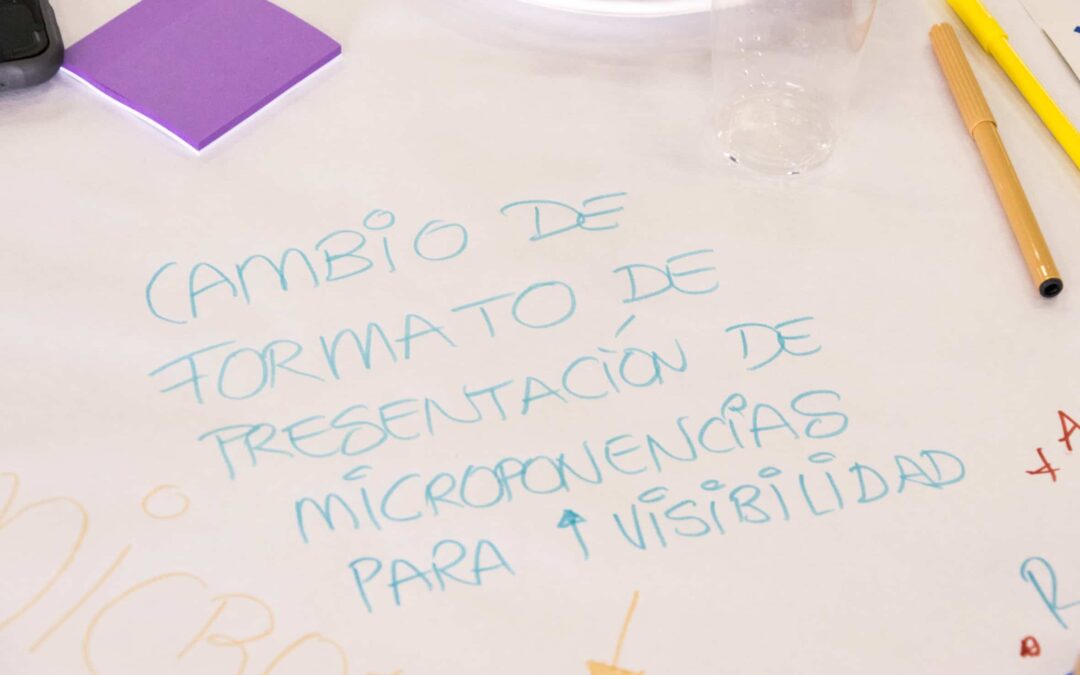 CAMBIO DE
FORMATO DE
PRESENTACIÓN DE
MICROPONENCIAS
PARA ↑ VISIBILIDAD
+ A
R